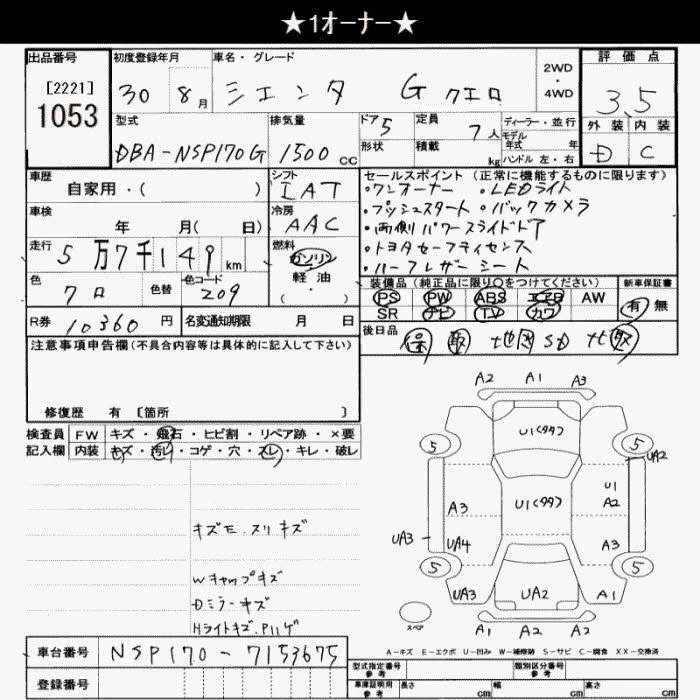 ★1オーナー★
出品番号
[2221]
1053
初度登録年月
30 8月
車名・グレード
シエンタ G クエロ
2WD
・
4WD
評価点
3.5
外装 内装
D C
型式
DBA-NSP170G
排気量
1500cc
ドア 5
形状
定員 7人
積載 kg
ディーラー・並行
モデル
年式 年
ハンドル 左・右
車歴
自家用・( )
シフト
IAT
車検
年 月( 日)
冷房
AAC
走行
5万7千149km
燃料
ガソリン
軽油
・
( )
色
クロ
色替
色コード
209
R券 10360円
名変通知期限 月 日
セールスポイント(正常に機能するものに限ります)
・ワンオーナー ・LEDライト
・プッシュスタート ・バックカメラ
・両側パワースライドドア
・トヨタセーフティセンス
・ハーフレザーシート
装備品(純正品に限り○をつけてください)
PS PW ABS エアB AW
SR ナビ TV カワ
新車保証書
有 無
後日品
保 取 地図SD
注意事項申告欄(不具合内容等は具体的に記入して下さい)
修復歴 有 [箇所 ]
検査員 FW キズ・飛石・ヒビ割・リペア跡・×要
記入欄 内装 キズ・汚れ・コゲ・穴・スレ・キレ・破レ
キズE.スリキズ
Wキャップキズ
Dミラーキズ
HライトキズP11ゲ
A2 A1 A3
5 U1(タタ) 5
UA2
U1
A3 U1(タタ) A2
UA3 UA4 A3
5 5
UA3 UA2 A1
スペア
A1 A2 A2
A-キズ E-エクボ U-凹み W-補修跡 S-サビ C-腐食 XX-交換済
車台番号 NSP170-7153675
登録番号
型式指定番号
参考
類別区分番号
参考
車庫証明用
参考
長さ cm 幅 cm 高さ cm